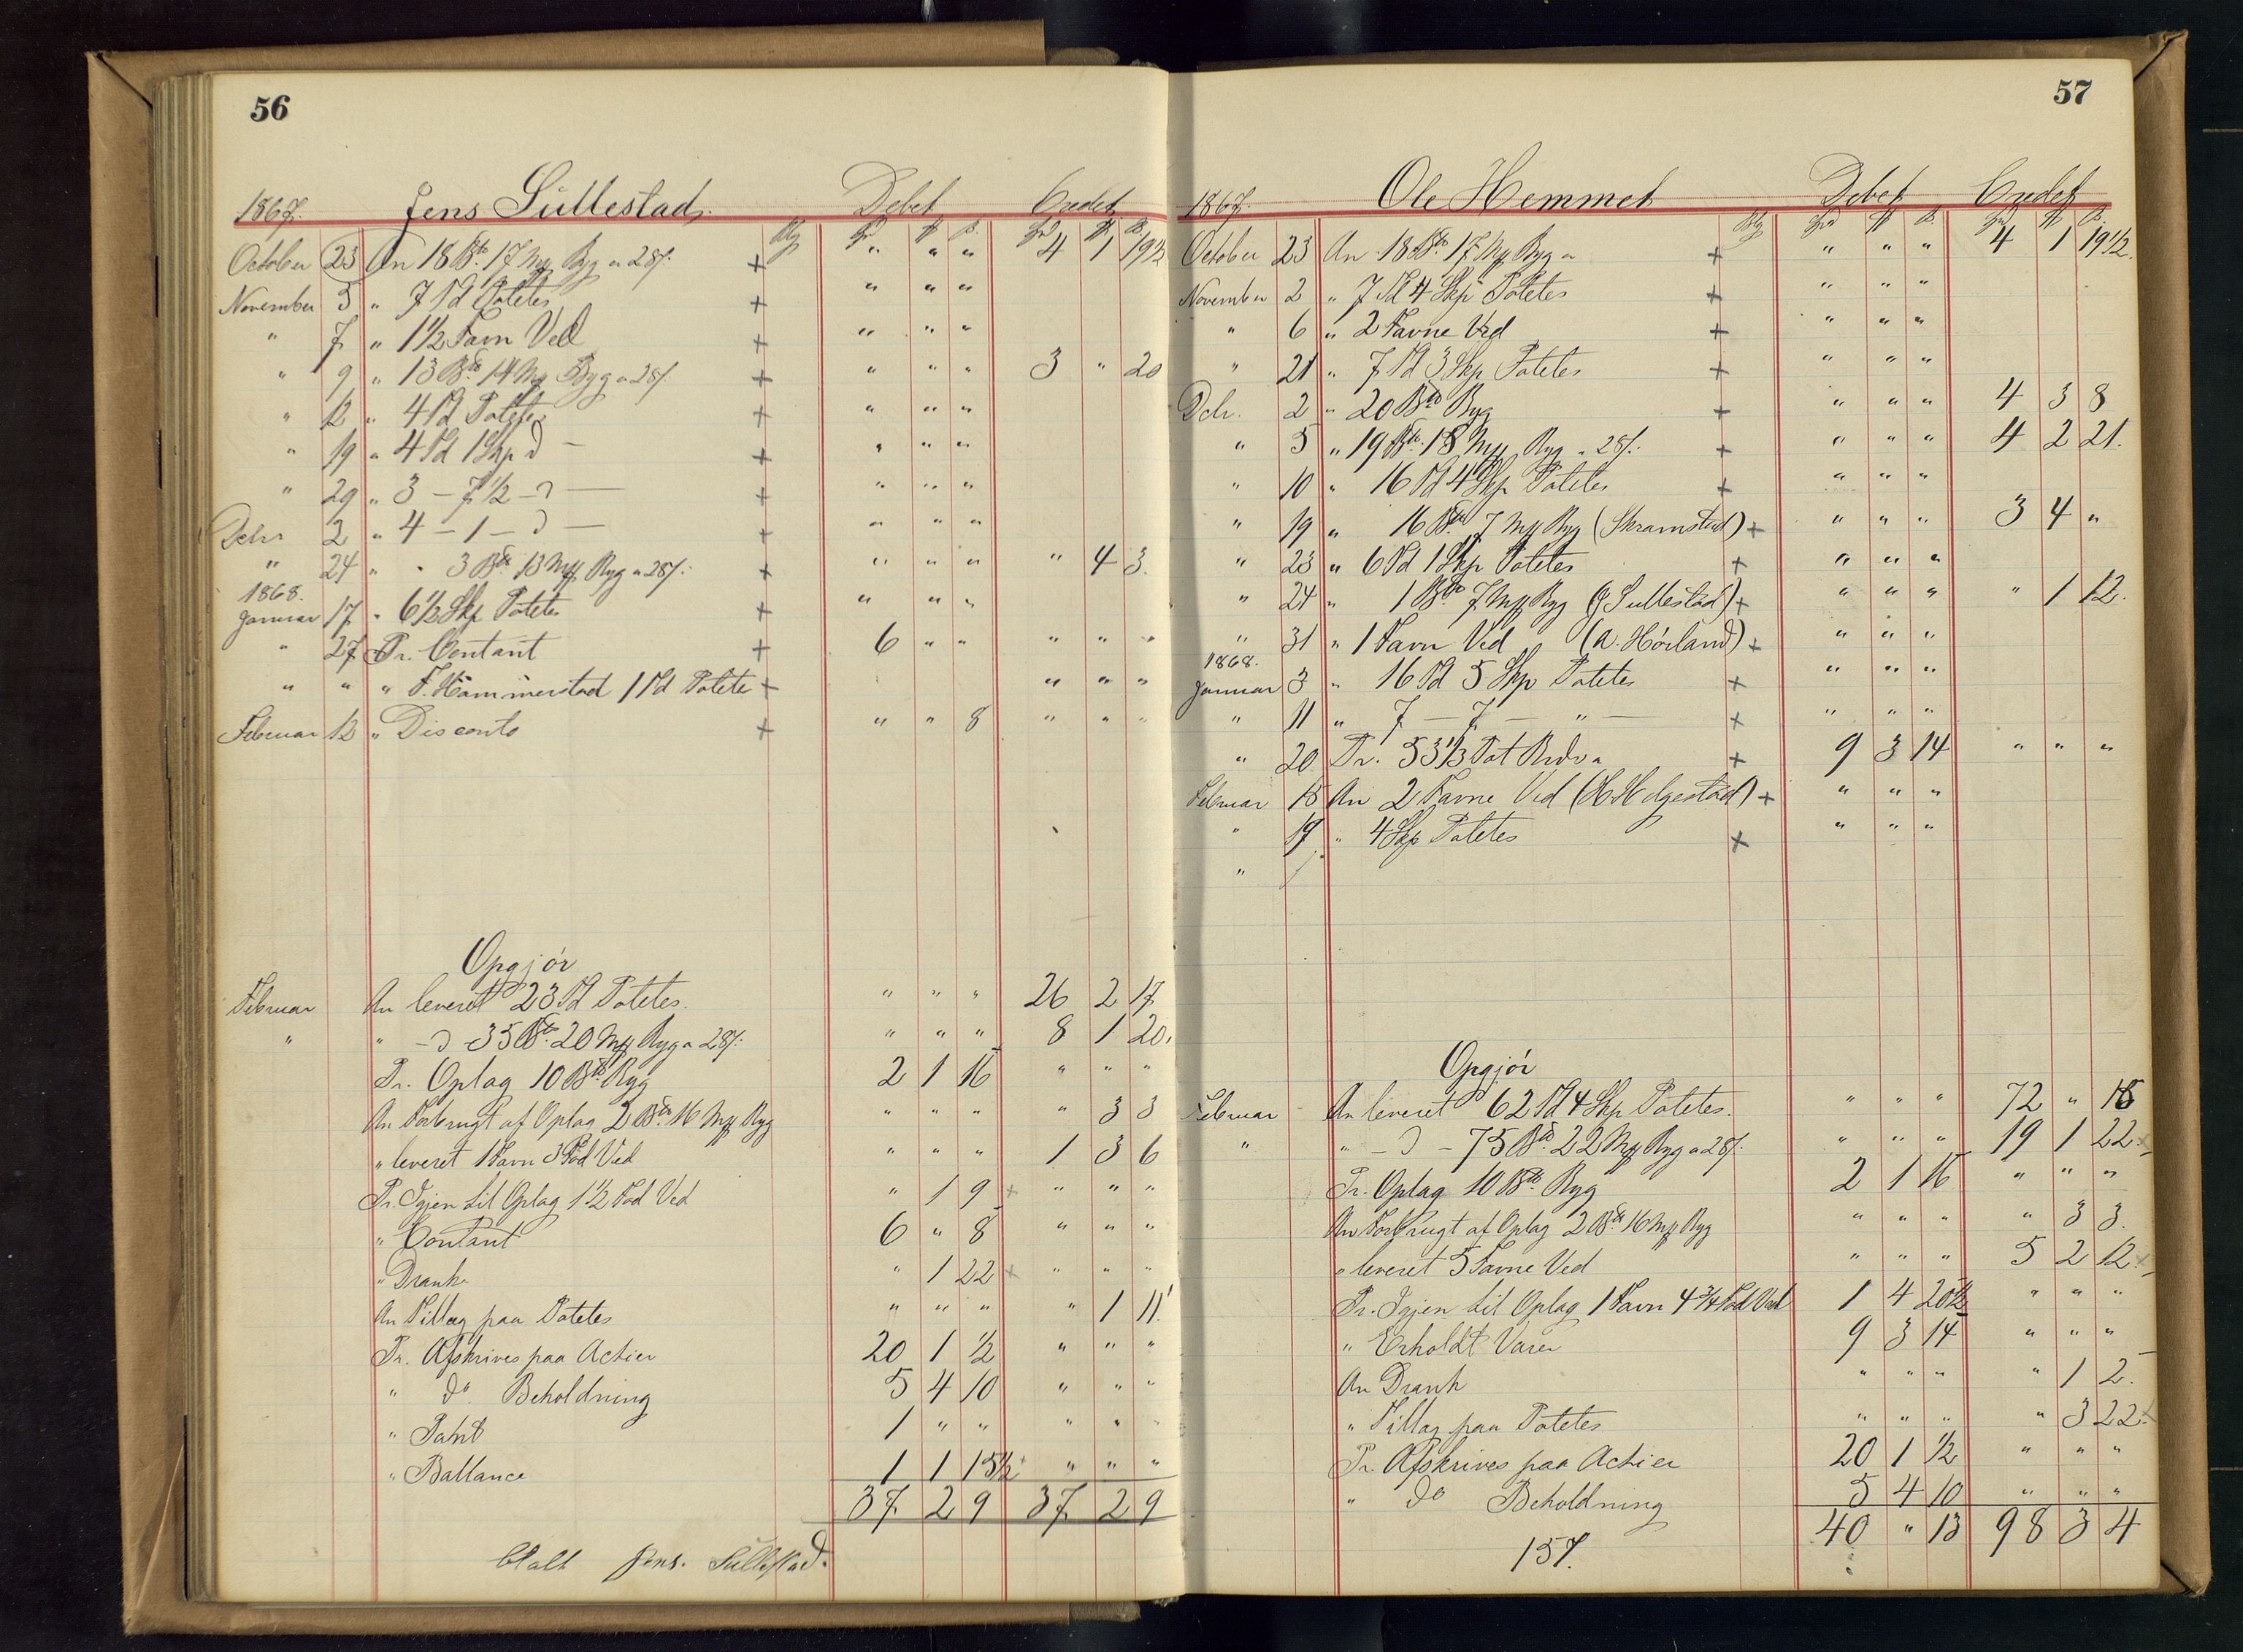 56
1867. Jens Sullestad. Debet Credet
October 23 An 18 Bd. 17 Mk Byg a 28/. + " " " 4 1 19½
November 5 " 7 Td Potetes + " " "
" 7 " 1½ Favn Ved + " " "
" 9 " 13 Bd. 14 Mk Byg a 28/. + " " " 3 " 20
" 12 " 4 Td Potetes + " " "
" 19 " 4 Td 1 Skp d — + " " "
" 29 " 3 — 7½ — d — + " " "
Dcbr 2 " 4 — 1 — d — + " " "
" 24 " " 3 Bd. 13 Mk Byg a 28/. + " " " " 4 3.
1868.
Januar 17 " 6½ Skp Potetes + " " "
" 27 Pr. Contant + 6 " " " " "
" " " F. Hammerstad 1 Td Potete + " " "
Februar 12 " Disconto + " " 8 " " "
Opgjór
Februar An leveret 23 Td Potetes. " " " 26 2 17
" " — d 35 Bd. 20 Mk Byg a 28/. " " " 8 1 20.
Pr. Oplag 10 Bd. Byg 2 1 16 " " "
An Forbrugt af Oplag 2 Bd. 16 Mk Byg " " " " 3 3
" leveret 1 Favn 3 Fod Ved " " " 1 3 6
Pr. Igjen til Oplag 1½ Fod Ved " 1 9 + " " "
" Contant 6 " 8 " " "
" Drank " 1 22 + " " "
An Tillæg paa Potetes " " " " 1 11
Pr. Afskrives paa Actier 20 1 ½ " " "
" do. Beholdning 5 4 10 " " "
" Tabt 1 " " " " "
" Ballance 1 1 15½ " " "
37 2 9 37 2 9
Jens. Sullestad.
57
1867. Ole Hemmet Debet Credet
October 23 An 18 Bd. 17 Mk Byg a + " " " 4 1 19½.
November 2 " 7 Td 4 Skp Potetes + " " "
" 6 " 2 Favne Ved + " " "
" 21 " 7 Td 3 Skp Potetes + " " "
Dcbr. 2 " 20 Bd Byg + " " " 4 3 8
" 5 " 19 Bd. 18 Mk Byg a 28/. + " " " 4 2 21.
" 10 " 16 Td 4 Skp Potetes + " " "
" 19 " 16 Bd. 7 Mk Byg (Skramstad) + " " " 3 4 "
" 23 " 6 Td 1 Skp Potetes + " " "
" 24 " 1 Bd. 7 Mk Byg (J Sullestad) + " " " " 1 12.
" 31 " 1 Favn Ved (A. Hórland) + " " "
1868.
Januar 3 " 16 Td 5 Skp Potetes + " " "
" 11 " 7 — 7 — " — + " " "
" 20 Pr. 53⅓ Pot Brdv a + 9 3 14 " " "
Februar 15 An 2 Favne Ved (H Helgestad) + " " "
" 19 " 4 Skp Potetes + " " "
"
Opgjór
Februar An leveret 62 Td 4 Skp Potetes. " " " 72 " 18
" " — d — 75 Bd. 22 Mk Byg a 28/. " " " 19 1 22
Pr. Oplag 10 Bd. Byg 2 1 16 " " "
An Forbrugt af Oplag 2 Bd. 16 Mk Byg " " " " 3 3.
" leveret 5 Favne Ved " " " 5 2 12.
Pr. Igjen til Oplag 1 Favn 4¾ Fod Ved 1 4 20½ " " "
" Erholdt Varer 9 3 14 " " "
An Drank " " " " 1 2.
" Tillæg paa Potetes " " " " 3 22.
Pr. Afskrives paa Actier 20 1 ½ " " "
" do Beholdning 5 4 10 " " "
40 " 13 98 3 4
157.